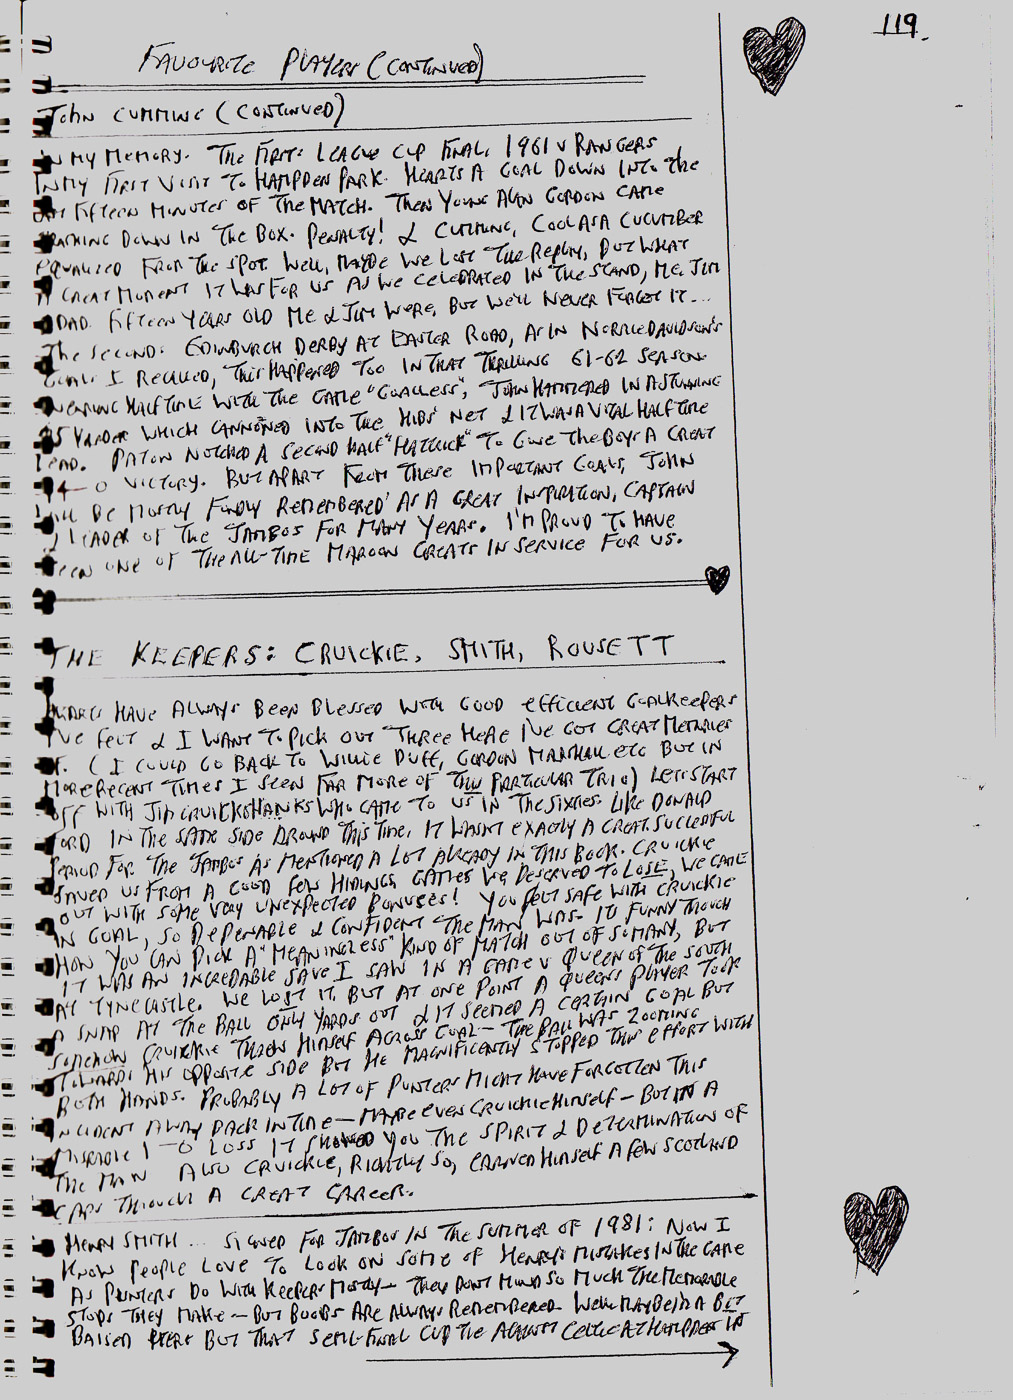 119.
FAVOURITE PLAYERS (CONTINUED)
JOHN CUMMING (CONTINUED)
IN MY MEMORY. THE FIRST: LEAGUE CUP FINAL, 1961 V RANGERS
IN MY FIRST VISIT TO HAMPDEN PARK. HEARTS A GOAL DOWN INTO THE
FIFTEEN MINUTES OF THE MATCH. THEN YOUNG ALAN GORDON CAME
CRASHING DOWN IN THE BOX. PENALTY! & CUMMING, COOL AS A CUCUMBER
EQUALISED FROM THE SPOT. WELL, MAYBE WE LOST THE REPLAY, BUT WHAT
A GREAT MOMENT IT WAS FOR US AS WE CELEBRATED IN THE STAND, ME, JIM
& DAD. FIFTEEN YEARS OLD ME & JIM WERE, BUT WE'LL NEVER FORGET IT...
THE SECOND: EDINBURGH DERBY AT EASTER ROAD, AS IN NORRIE DAVIDSON'S
GOALS I RECALLED, THIS HAPPENED TOO IN THAT THRILLING 61-62 SEASON.
NEARING HALF TIME WITH THE GAME "GOALLESS", JOHN HAMMERED IN A STUNNING
25 YARDER WHICH CANNONED INTO THE HIBS' NET & IT WAS A VITAL HALF TIME
LEAD. PATON NOTCHED A SECOND HALF "HATTRICK" TO GIVE THE BOYS A GREAT
4-0 VICTORY. BUT APART FROM THESE IMPORTANT GOALS, JOHN
WILL BE MOSTLY FONDLY REMEMBERED AS A GREAT INSPIRATION, CAPTAIN
& LEADER OF THE JAMBOS FOR MANY YEARS. I'M PROUD TO HAVE
SEEN ONE OF THE ALL-TIME MAROON GREATS IN SERVICE FOR US.
THE KEEPERS: CRUICKIE, SMITH, ROUSETT
HEARTS HAVE ALWAYS BEEN BLESSED WITH GOOD EFFICIENT GOALKEEPERS
I'VE FELT & I WANT TO PICK OUT THREE HERE I'VE GOT GREAT MEMORIES
OF. (I COULD GO BACK TO WILLIE DUFF, GORDON MARSHALL ETC BUT IN
MORE RECENT TIMES I SEEN FAR MORE OF THIS PARTICULAR TRIO) LETS START
OFF WITH JIM CRUICKSHANKS WHO CAME TO US IN THE SIXTIES. LIKE DONALD
FORD IN THE SAME SIDE AROUND THIS TIME, IT WASN'T EXACTLY A GREAT SUCCESSFUL
PERIOD FOR THE JAMBOS AS MENTIONED A LOT ALREADY IN THIS BOOK. CRUICKIE
SAVED US FROM A GOOD FEW HIDINGS, GAMES WE DESERVED TO LOSE, WE CAME
OUT WITH SOME VERY UNEXPECTED BONUSES! YOU FELT SAFE WITH CRUICKIE
IN GOAL, SO DEPENABLE & CONFIDENT THE MAN WAS. ITS FUNNY THOUGH
HOW YOU CAN PICK A "MEANINGLESS" KIND OF MATCH OUT OF SO MANY, BUT
IT WAS AN INCREDABLE SAVE I SAW IN A GAME V QUEEN OF THE SOUTH
AT TYNECASTLE. WE LOST IT, BUT AT ONE POINT A QUEENS PLAYER TOOK
A SNAP AT THE BALL ONLY YARDS OUT & IT SEEMED A CERTAIN GOAL BUT
SOMEHOW CRUICKIE THREW HIMSELF ACROSS GOAL - THE BALL WAS ZOOMING
TOWARDS HIS OPPOSITE SIDE BUT HE MAGNIFICENTLY STOPPED THIS EFFORT WITH
BOTH HANDS. PROBABLY A LOT OF PUNTERS MIGHT HAVE FORGOTTEN THIS
INCIDENT AWAY BACK IN TIME - MAYBE EVEN CRUICKIE HIMSELF - BUT IN A
MISERABLE 1-0 LOSS IT SHOWED YOU THE SPIRIT & DETERMINATION OF
THE MAN ALSO CRUICKIE, RIGHTLY SO, EARNED HIMSELF A FEW SCOTLAND
CAPS THROUGH A GREAT CAREER.
HENRY SMITH... SIGNED FOR JAMBOS IN THE SUMMER OF 1981: NOW I
KNOW PEOPLE LOVE TO LOOK ON SOME OF HENRY'S MISTAKES IN THE GAME
AS PUNTERS DO WITH KEEPERS MOSTLY - THEY DONT MIND SO MUCH THE MEMORABLE
STOPS THEY MAKE - BUT BOOBS ARE ALWAYS REMEMBERED. WELL MAYBE I'M A BIT
BAISED HERE BUT THAT SEMI-FINAL CUP TIE AGAINST CELTIC AT HAMPDEN IN